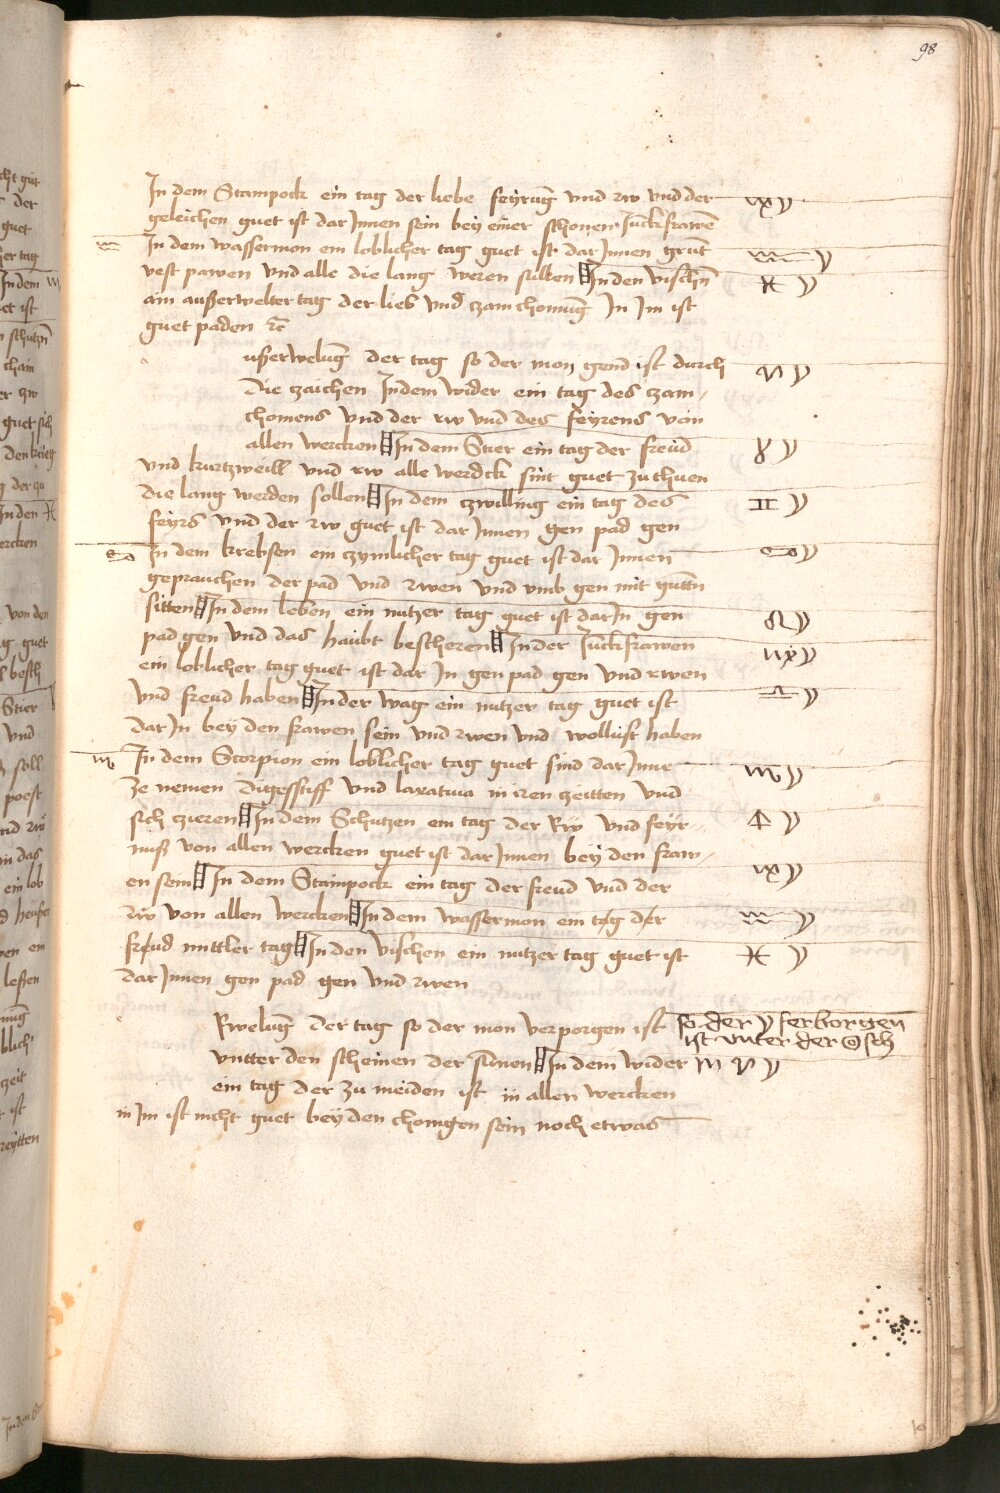 98
In dem Stainpock ein tag der liebe feyrūg vnd rw vnd der
geleichen guet ist dar Jnnen sein bey einer schonen Junckfrawē
In dem wassermon ein loblicher tag guet ist dar Jnnen grūt
vest pawen vnd alle die lang weren sullen In den vischn̄
ain außerwelter tag der lieb vnd czamchomūg In Im ist
guet paden ꝛc̄
ußerwelūg der tag so der mon gend ist durch
die zaichen In dem wider ein tag des czam
chomens vnd der rw vnd des feyrens von
allen wercken In dem Stier ein tag der freud
vnd kurtzweill vnd rw alle werdck sint guet zu thuen
die lang werden sollen In dem zwilling ein tag des
feyrs vnd der rw guet ist dar Jnnen gen pad gen
In dem krebsen ein czymlicher tag guet ist dar Jnnen
geprauchen der pad vnd rwen vnd vmb gen mit gutn̄
sitten In dem leben ein nutzer tag guet ist dar In gen
pad gen vnd das haubt bescheren In der Junckfrawen
ein loblicher tag guet ist dar In gen pad gen vnd rwen
vnd freud haben In der wag ein nutzer tag guet ist
dar In bey den frawen sein vnd rwen vnd wollust haben
In dem Scorpion ein loblicher tag guet sind dar Jnne
ze nemen digesstiff vnd laxatiua in iren zeitten vnd
sich zieren In dem Schutzen ein tag der Rw vnd feyr
nuß von allen wercken guet ist dar Jnnen bey den fraw
en sein In dem Stainpock ein tag der freud vnd der
rw von allen wercken In dem wassermon ein tag der
freud mittler tag In den vischen ein nutzer tag guet ist
dar Jnnen gen pad gen vnd rwen
Rwelūg der tag so der mon verporgen ist so der ☽ ferborgen
ist vnter der ☉ sch
vntter den scheinen der sūnen In dem wider
ein tag der zu meiden ist in allen wercken
in Im ist nicht guet bey den chonigen sein noch etwas